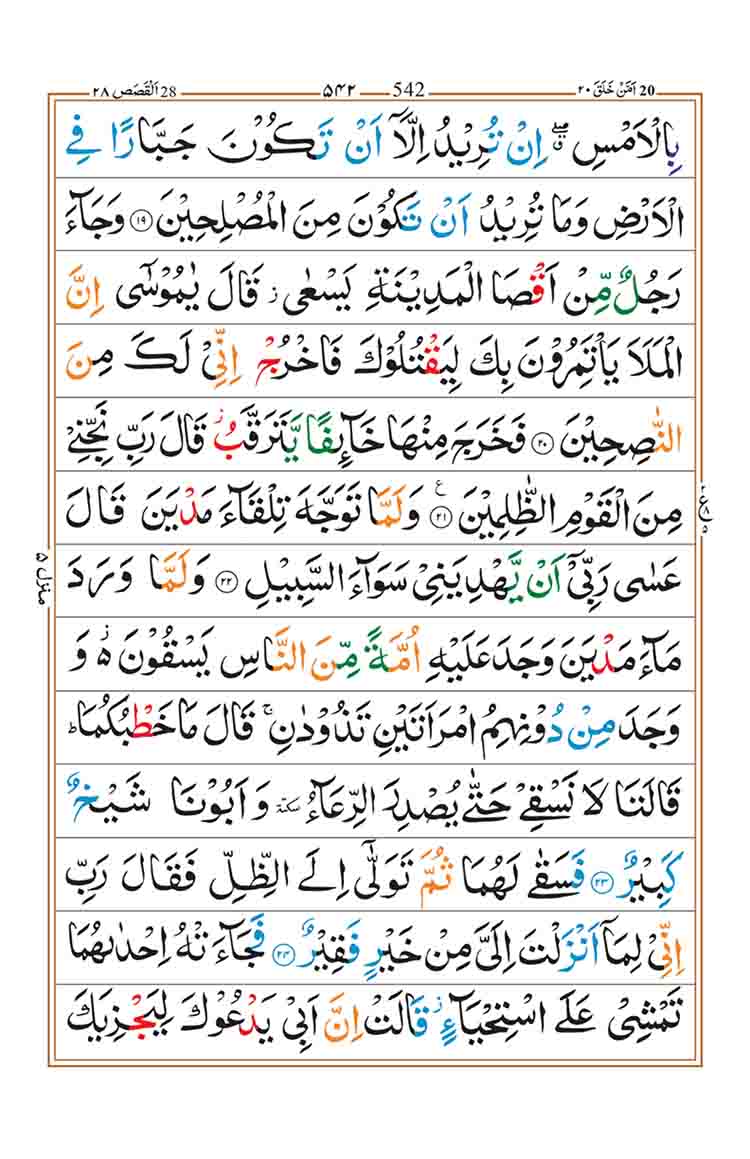 20 اَمَّنْ خَلَقَ ۲۰ 542 ۵۴۲ 28 اَلْقَصَص ۲۸
بِالْاَمْسِ ۖۗ اِنْ تُرِیْدُ اِلَّاۤ اَنْ تَكُوْنَ جَبَّارًا فِی
الْاَرْضِ وَمَا تُرِیْدُ اَنْ تَكُوْنَ مِنَ الْمُصْلِحِیْنَ ۱۹ وَجَآءَ
رَجُلٌ مِّنْ اَقْصَا الْمَدِیْنَةِ یَسْعٰی ز قَالَ یٰمُوْسٰۤی اِنَّ
الْمَلَاَ یَاْتَمِرُوْنَ بِكَ لِیَقْتُلُوْكَ فَاخْرُجْ اِنِّیْ لَكَ مِنَ
النّٰصِحِیْنَ ۲۰ فَخَرَجَ مِنْهَا خَآئِفًا یَّتَرَقَّبُ ز قَالَ رَبِّ نَجِّنِیْ
مِنَ الْقَوْمِ الظّٰلِمِیْنَ ۲۱ ع وَلَمَّا تَوَجَّهَ تِلْقَآءَ مَدْیَنَ قَالَ
عَسٰی رَبِّیْۤ اَنْ یَّهْدِیَنِیْ سَوَآءَ السَّبِیْلِ ۲۲ وَلَمَّا وَرَدَ
مَآءَ مَدْیَنَ وَجَدَ عَلَیْهِ اُمَّةً مِّنَ النَّاسِ یَسْقُوْنَ ە۬ وَ
وَجَدَ مِنْ دُوْنِهِمُ امْرَاَتَیْنِ تَذُوْدٰنِ ۚ قَالَ مَا خَطْبُكُمَا ؕ
قَالَتَا لَا نَسْقِیْ حَتّٰی یُصْدِرَ الرِّعَآءُ سكتة وَ اَبُوْنَا شَیْخٌ
كَبِیْرٌ ۲۳ فَسَقٰی لَهُمَا ثُمَّ تَوَلّٰۤی اِلَی الظِّلِّ فَقَالَ رَبِّ
اِنِّیْ لِمَاۤ اَنْزَلْتَ اِلَیَّ مِنْ خَیْرٍ فَقِیْرٌ ۲۴ فَجَآءَتْهُ اِحْدٰىهُمَا
تَمْشِیْ عَلَی اسْتِحْیَآءٍ ز قَالَتْ اِنَّ اَبِیْ یَدْعُوْكَ لِیَجْزِیَكَ
منزل ۵